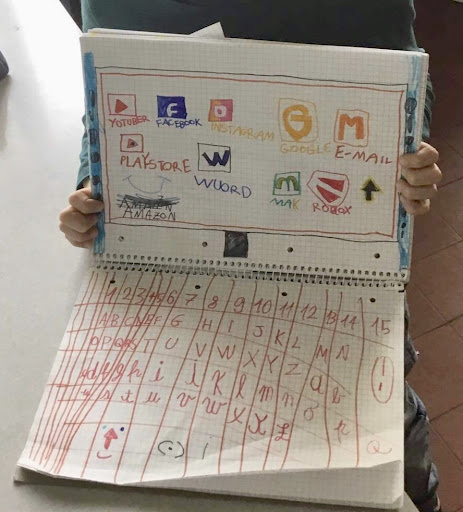 YOTUBER FACEBOOK INSTAGRAM GOOGLE E-MAIL
PLAYSTORE WUORD MAK ROBOX
AMAZON
1 2 3 4 5 6 7 8 9 10 11 12 13 14 15
A B C D E F G H I J K L M N
O P Q R S T U V W X Y Z a b
i j k l m n o p
s t u v w x y z